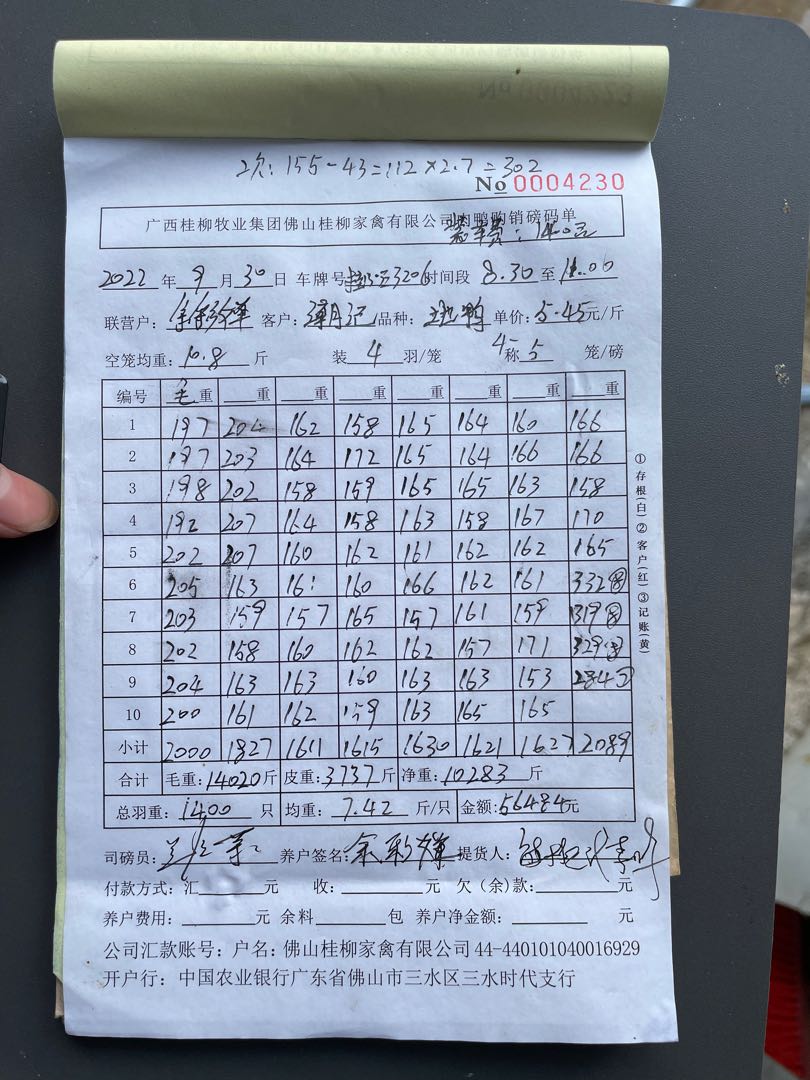 2次: 155-43=112×2.7=302
No 0004230
广西桂柳牧业集团佛山桂柳家禽有限公司肉鸭购销磅码单
装车费: 140元
2022 年 9 月 30 日 车牌号 3206 时间段 8.30 至 11.00
联营户: 余彩辉 客户: 潮记 品种: 土北鸭 单价: 5.45 元/斤
空笼均重: 10.8 斤 装 4 羽/笼 4-称5 笼/磅
编号 毛重 重 重 重 重 重 重 重
1 197 204 162 158 165 164 160 166
2 197 203 164 172 165 164 166 166
3 198 202 158 159 165 165 163 158
4 192 207 164 158 163 158 167 170
5 202 207 160 162 161 162 162 165
6 205 163 161 160 166 162 161 332⑧
7 203 159 157 165 157 161 159 319⑧
8 202 158 160 162 162 157 171 329⑧
9 204 163 163 160 163 163 153 284⑦
10 200 161 162 159 163 165 165
小计 2000 1827 1611 1615 1630 1621 1627 2089
合计 毛重: 14020 斤 皮重: 3737 斤 净重: 10283 斤
总羽重: 1400 只 均重: 7.42 斤/只 金额: 56484 元
司磅员: 养户签名: 余彩辉 提货人:
付款方式: 汇 元 收: 元 欠(余)款: 元
养户费用: 元 余料 包 养户净金额: 元
公司汇款账号: 户名: 佛山桂柳家禽有限公司 44-440101040016929
开户行: 中国农业银行广东省佛山市三水区三水时代支行
①存根(白)②客户(红)③记账(黄)